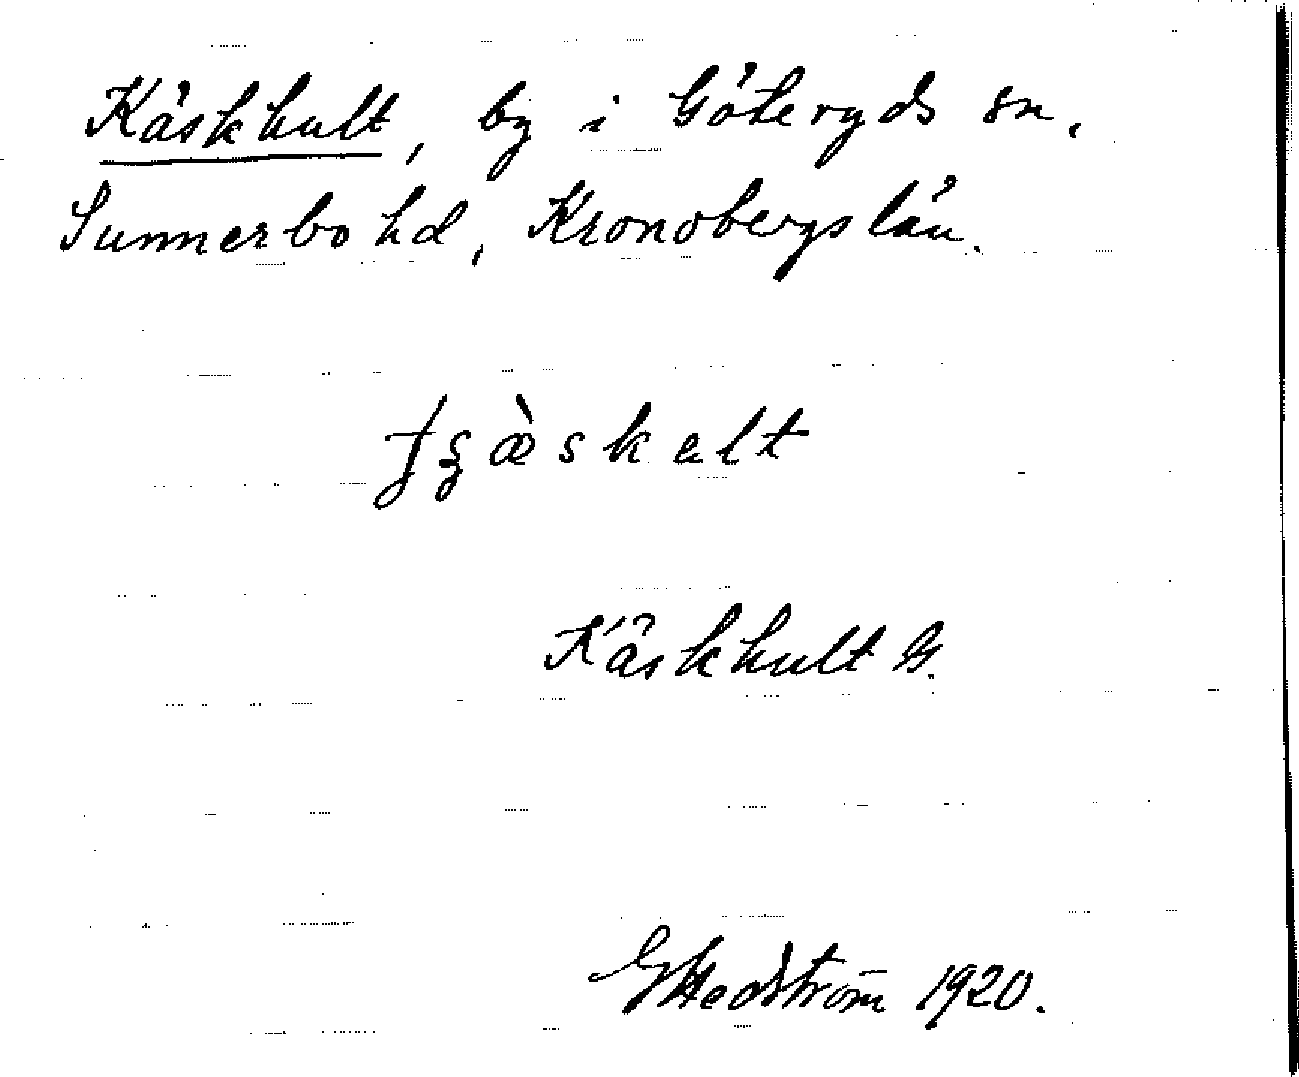 Käskhult, by i Göteryds sn,
Sunnerbo hd, Kronobergs län.
Käskhult G.
G Hedström 1920.